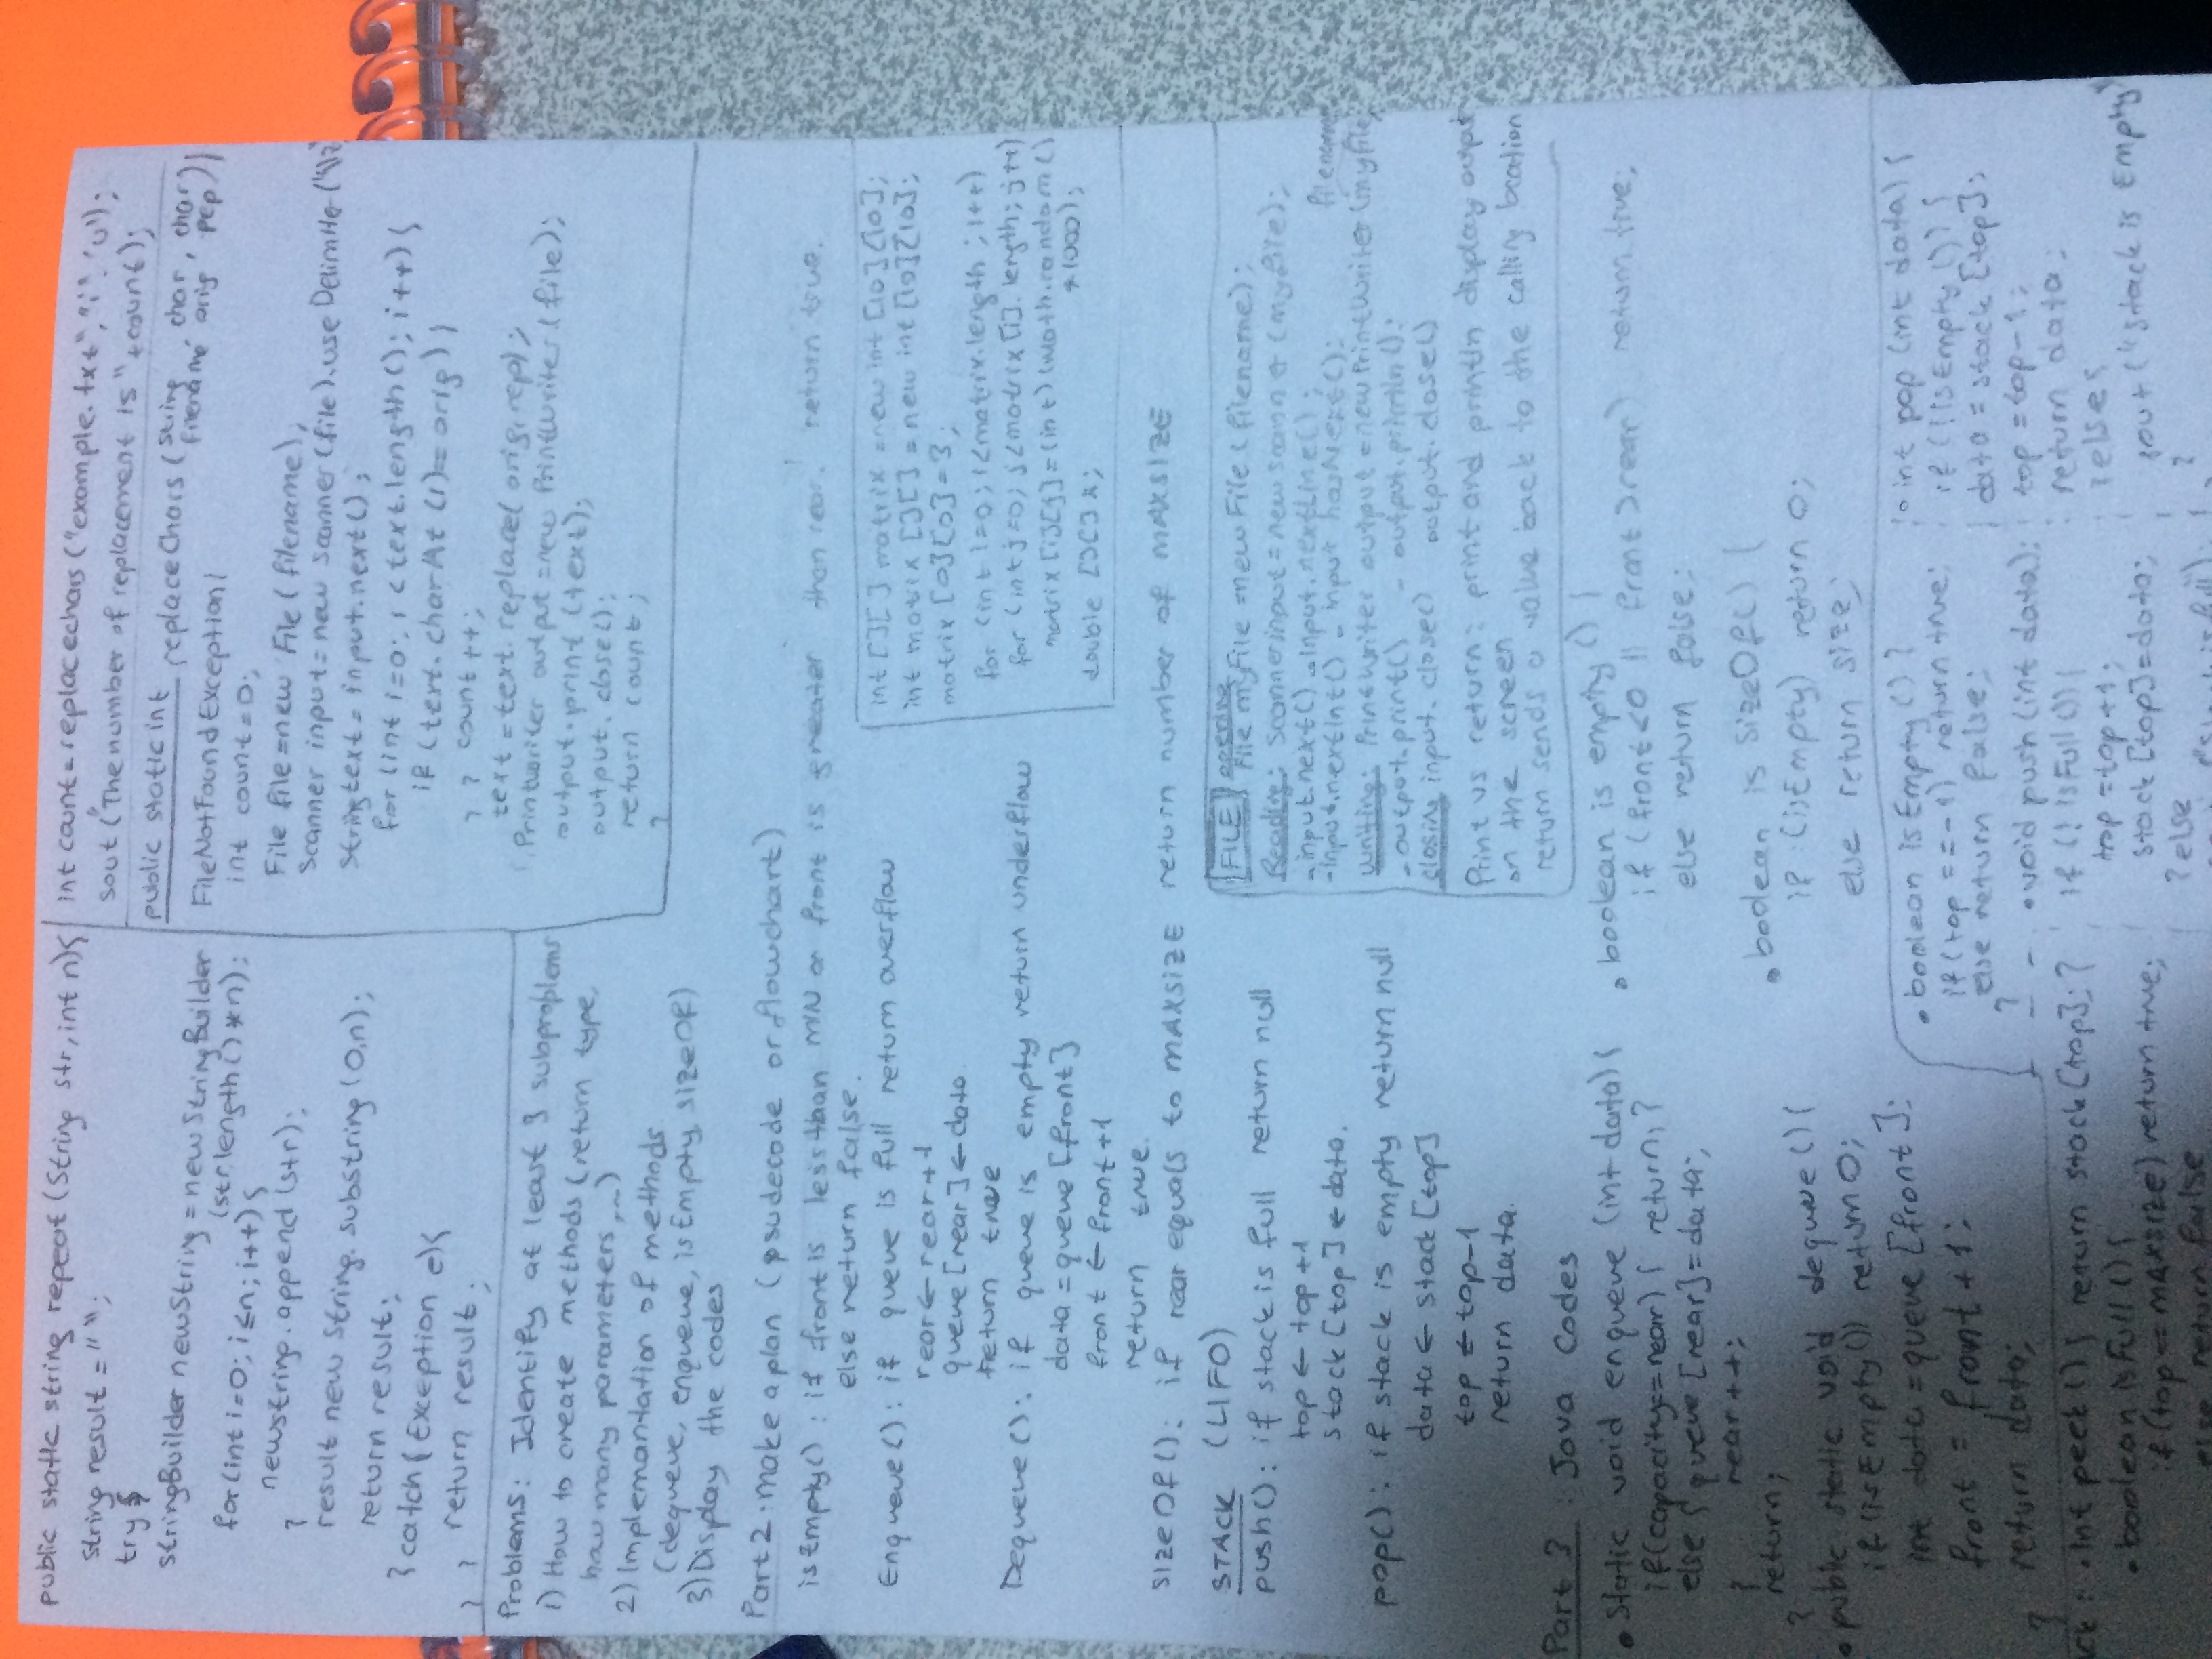 public static string repeat (String str, int n){
String result = " ";
try {
StringBuilder newString = new StringBuilder
(str.length() * n);
for(int i=0; i≤n; i++) {
newstring.append (str);
}
result new String. substring (0,n);
return result;
} catch ( Exception e){
return result;
} }
int count = replacechars ("example.txt", "i", 'u');
sout ("The number of replacement is" + count);
public static int replaceChars ( String filename , char orig , char rep) {
FileNotFoundException {
int count = 0;
File file = new File ( filename);
Scanner input = new Scanner (file).use Delimiter ("\\z"
String text = input.next();
for (int i=0; i < text.length(); i++) {
if (text. charAt (i) == orig) {
count ++;
} }
text = text. replace( orig, rep);
Printwriter output = new PrintWriter (file);
output.print (text);
output. close();
return count;
}
Problems: Identify at least 3 subproblems
1) How to create methods (return type,
how many parameters, ...)
2) Implemantation of methods
(dequeue, enqueue, isEmpty, sizeOf)
3) Display the codes
Part 2. make a plan (psudecode or flowchart)
isEmpty() : if front is less than MIN or front is greater than rear. return true.
else return false.
Enqueue() : if queue is full return overflow
rear ← rear + 1
queue [rear] ← data
return true
Dequeue (): if queue is empty return underflow
data = queue [front]
front ← front +1
return true.
sizeOf(): if rear equals to MAXSIZE return number of MAXSIZE
int [ ][ ] matrix = new int [10][10];
int matrix [ ][ ] = new int [10][10];
matrix [0][0] = 3;
for (int i=0; i<matrix.length ; i++)
for (int j=0; j<matrix [i]. length; j++)
matrix [i][j] = (int) (Math.random ()
* 1000);
double [ ][ ] x;
STACK (LIFO)
push(): if stack is full return null
top ← top +1
stack [top] ← data.
pop() : if stack is empty return null
data ← stack [top]
top ← top-1
return data.
FILE opening
File myFile = new File ( filename);
Reading: Scanner input = new scanner (myfile);
- input.next() - Input.nextLine();
- Input.nextInt() - input hasNext();
filename
writing: PrintWriter output = new PrintWriter (myfile)
- output.print() - output.println();
closing input. close() output. close()
Print vs return: print and println display output
on the screen
return sends a value back to the calling location
Part 3 : Java Codes
• Static void enqueue (int data) {
if(capacity == rear) { return; }
else { queue [rear] = data;
rear ++;
}
return;
}
• public static void dequeue () {
if (isEmpty()) return 0;
int data = queue [front];
front = front + 1;
return data;
}
• boolean is empty () {
if (front < 0 || front > rear) return true;
else return false;
• boolean is SizeOf() {
if (isEmpty) return 0;
else return size;
• boolean isEmpty () {
if (top == -1) return true;
else return false;
}
• void push (int data);
if (! isFull ()) {
top = top +1;
stack [top] = data;
} else
is full);
• int pop (int data) {
if (!isEmpty ()) {
data = stack [top];
top = top-1;
return data;
} else {
sout ("Stack is Empty"
}
ck: • Int peek () { return stack [top]; }
• boolean isFull () {
if (top == MAXSIZE) return true;
else return false